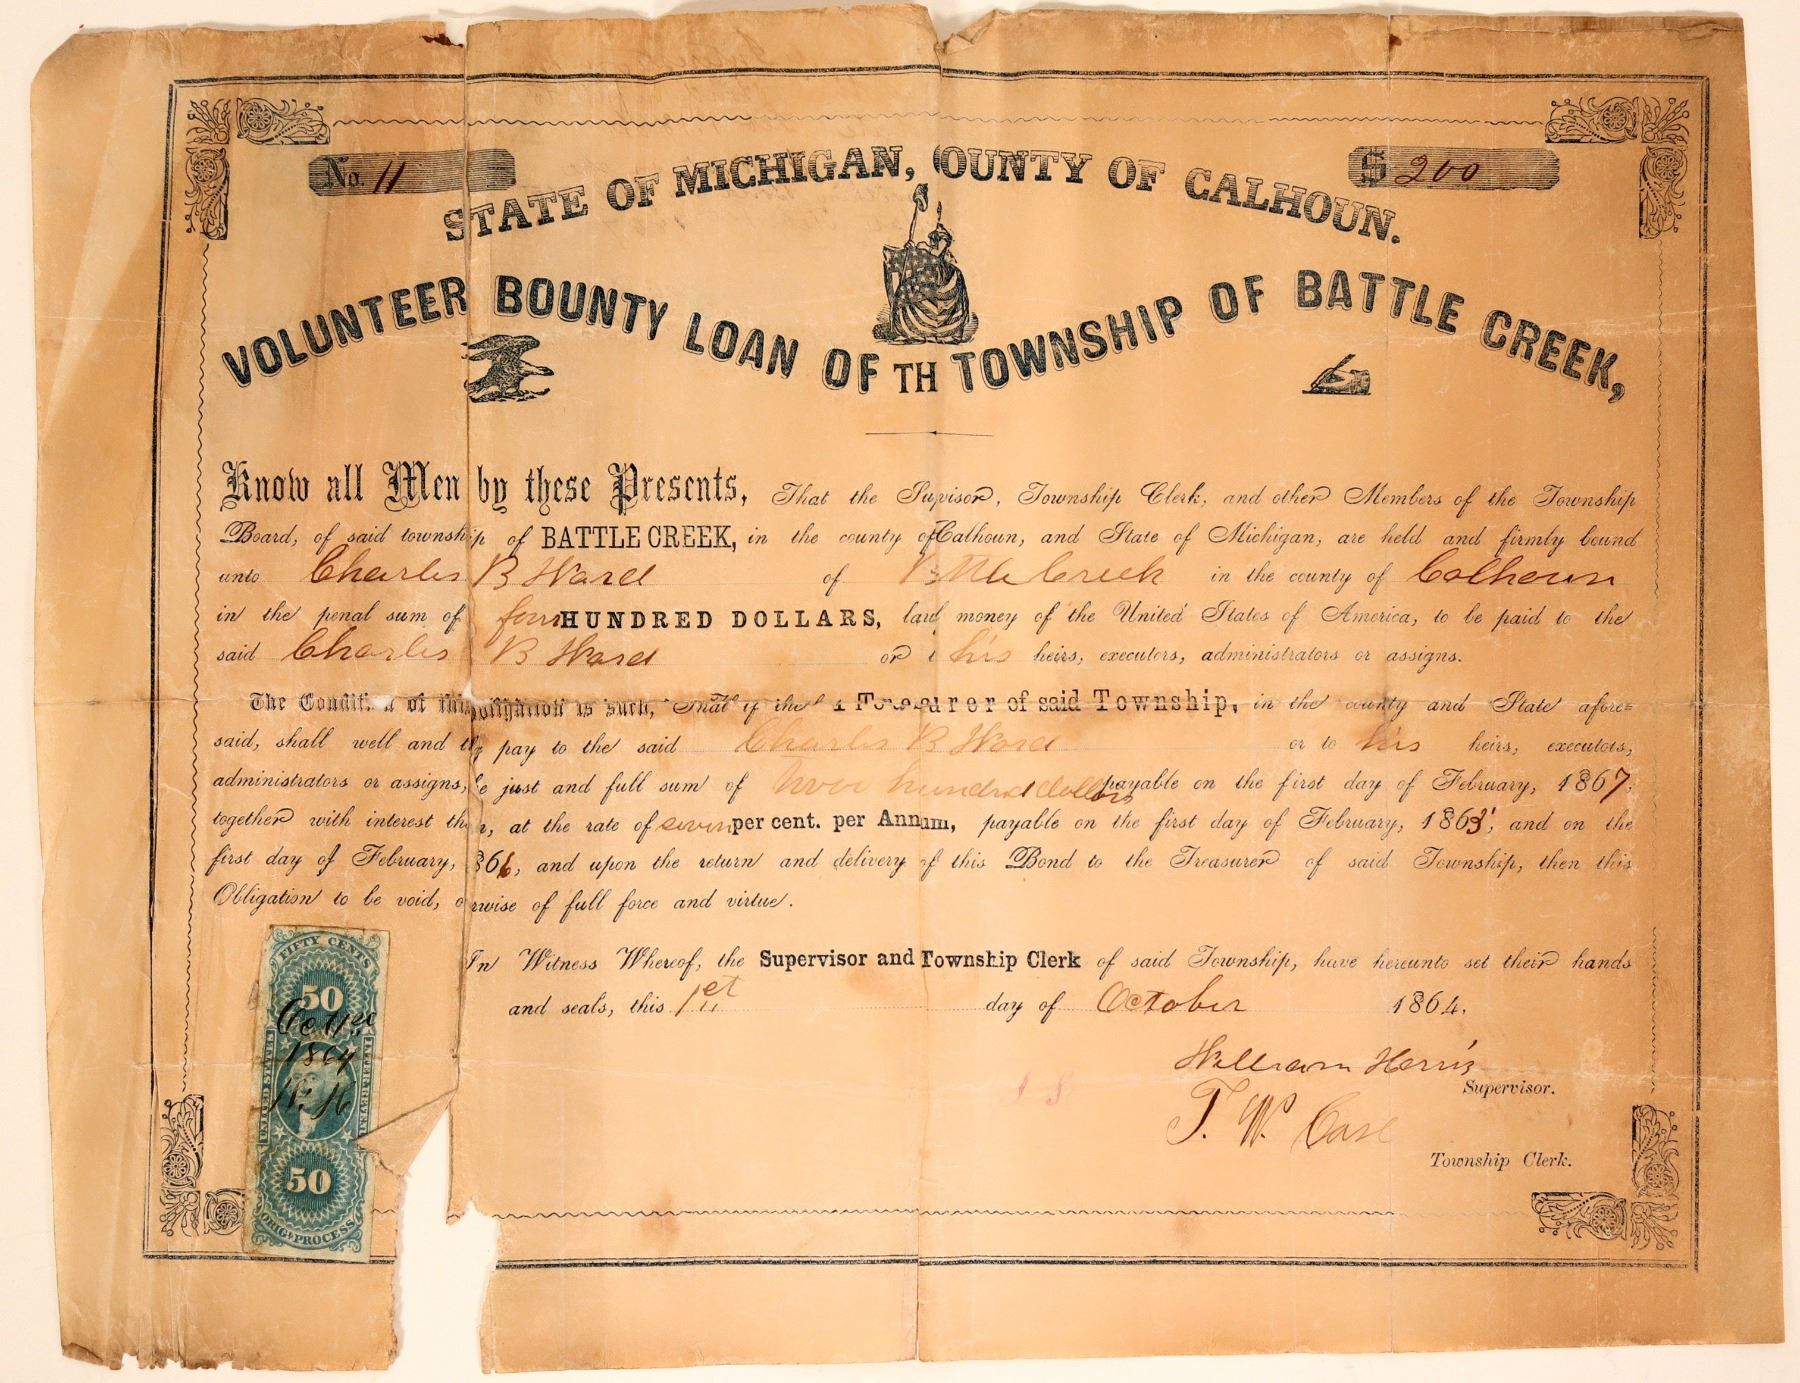 No. 11
$ 200
STATE OF MICHIGAN, COUNTY OF CALHOUN.
VOLUNTEER BOUNTY LOAN OF TH TOWNSHIP OF BATTLE CREEK,
Know all Men by these Presents, That the Supvisor, Township Clerk, and other Members of the Township
Board, of said township of BATTLE CREEK, in the county of Calhoun, and State of Michigan, are held and firmly bound
unto Charles B Ward of Battle Creek in the county of Calhoun
in the penal sum of four HUNDRED DOLLARS, lawful money of the United States of America, to be paid to the
said Charles B Ward or his heirs, executors, administrators or assigns.
The Condition of this obligation is such, That if the Treasurer of said Township, in the county and State afore=
said, shall well and pay to the said Charles B Ward or to his heirs, executors,
administrators or assigns, just and full sum of two hundred dollars payable on the first day of February, 1867,
together with interest, at the rate of seven per cent. per Annum, payable on the first day of February, 186, and on the
first day of February, 1866, and upon the return and delivery of this Bond to the Treasurer of said Township, then this
Obligation to be void, of full force and virtue.
In Witness Whereof, the Supervisor and Township Clerk of said Township, have hereunto set their hands
and seals, this 1st day of October 1864.
William Herris
Supervisor.
T. W. Case
Township Clerk.
FIFTY CENTS
50
1864
UNITED STATES
INTER. REVENUE
50
ORIG. PROCESS